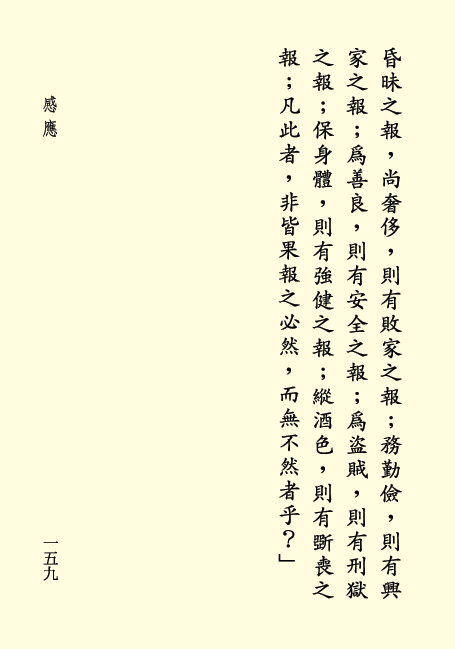 昏昧之報，尚奢侈，則有敗家之報；務勤儉，則有興
家之報；爲善良，則有安全之報；爲盜賊，則有刑獄
之報；保身體，則有強健之報；縱酒色，則有斲喪之
報；凡此者，非皆果報之必然，而無不然者乎？」
感應
一五九